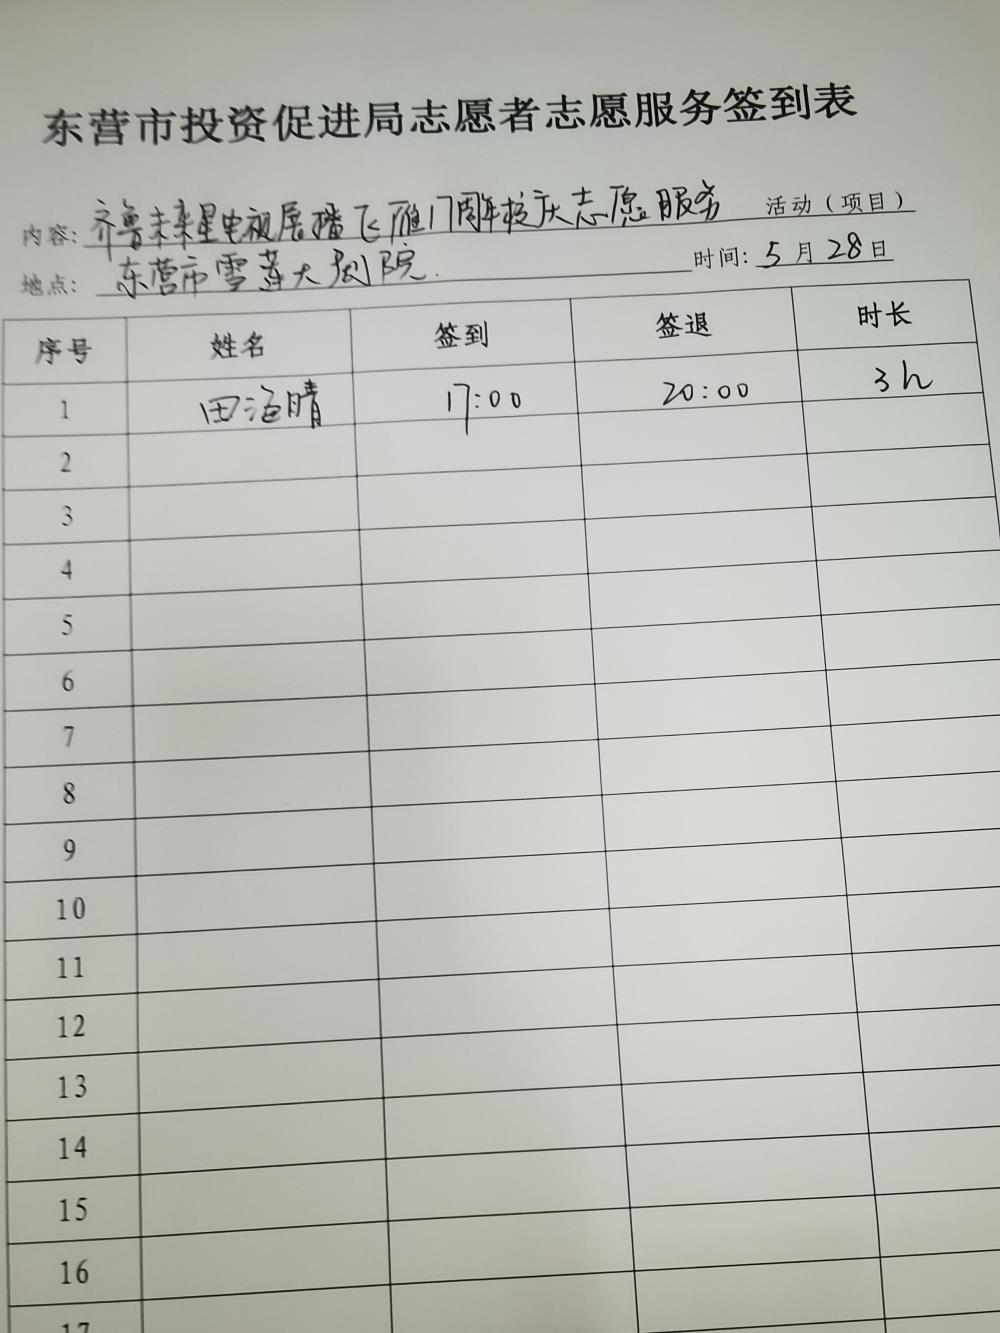 东营市投资促进局志愿者志愿服务签到表
内容: 齐鲁未来星电视展播飞雁17周年校庆志愿服务 活动（项目）
地点: 东营市雪莲大剧院. 时间: 5月28日
序号 姓名 签到 签退 时长
1 田海晴 17:00 20:00 3h
2
3
4
5
6
7
8
9
10
11
12
13
14
15
16
17